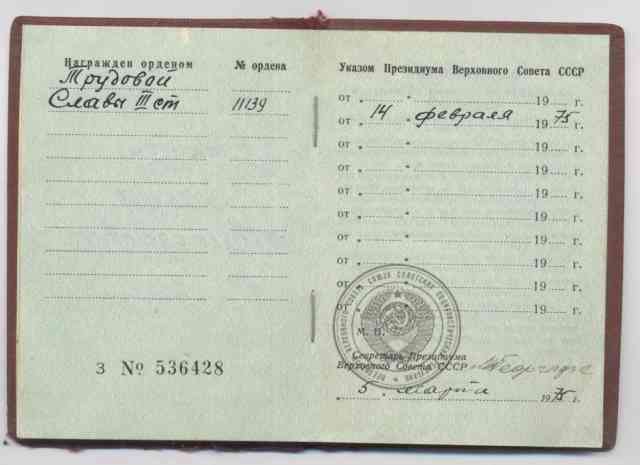 Награжден орденом
№ ордена
Трудовой
Славы III ст
11139
З № 536428
Указом Президиума Верховного Совета СССР
от „ “ 19 г.
от „ 14 “ февраля 1975 г.
от „ “ 19 г.
от „ “ 19 г.
от „ “ 19 г.
от „ “ 19 г.
от „ “ 19 г.
от „ “ 19 г.
от „ “ 19 г.
от „ “ 19 г.
М. П.
Секретарь Президиума
Верховного Совета СССР
„ 5 “ марта 1975 г.